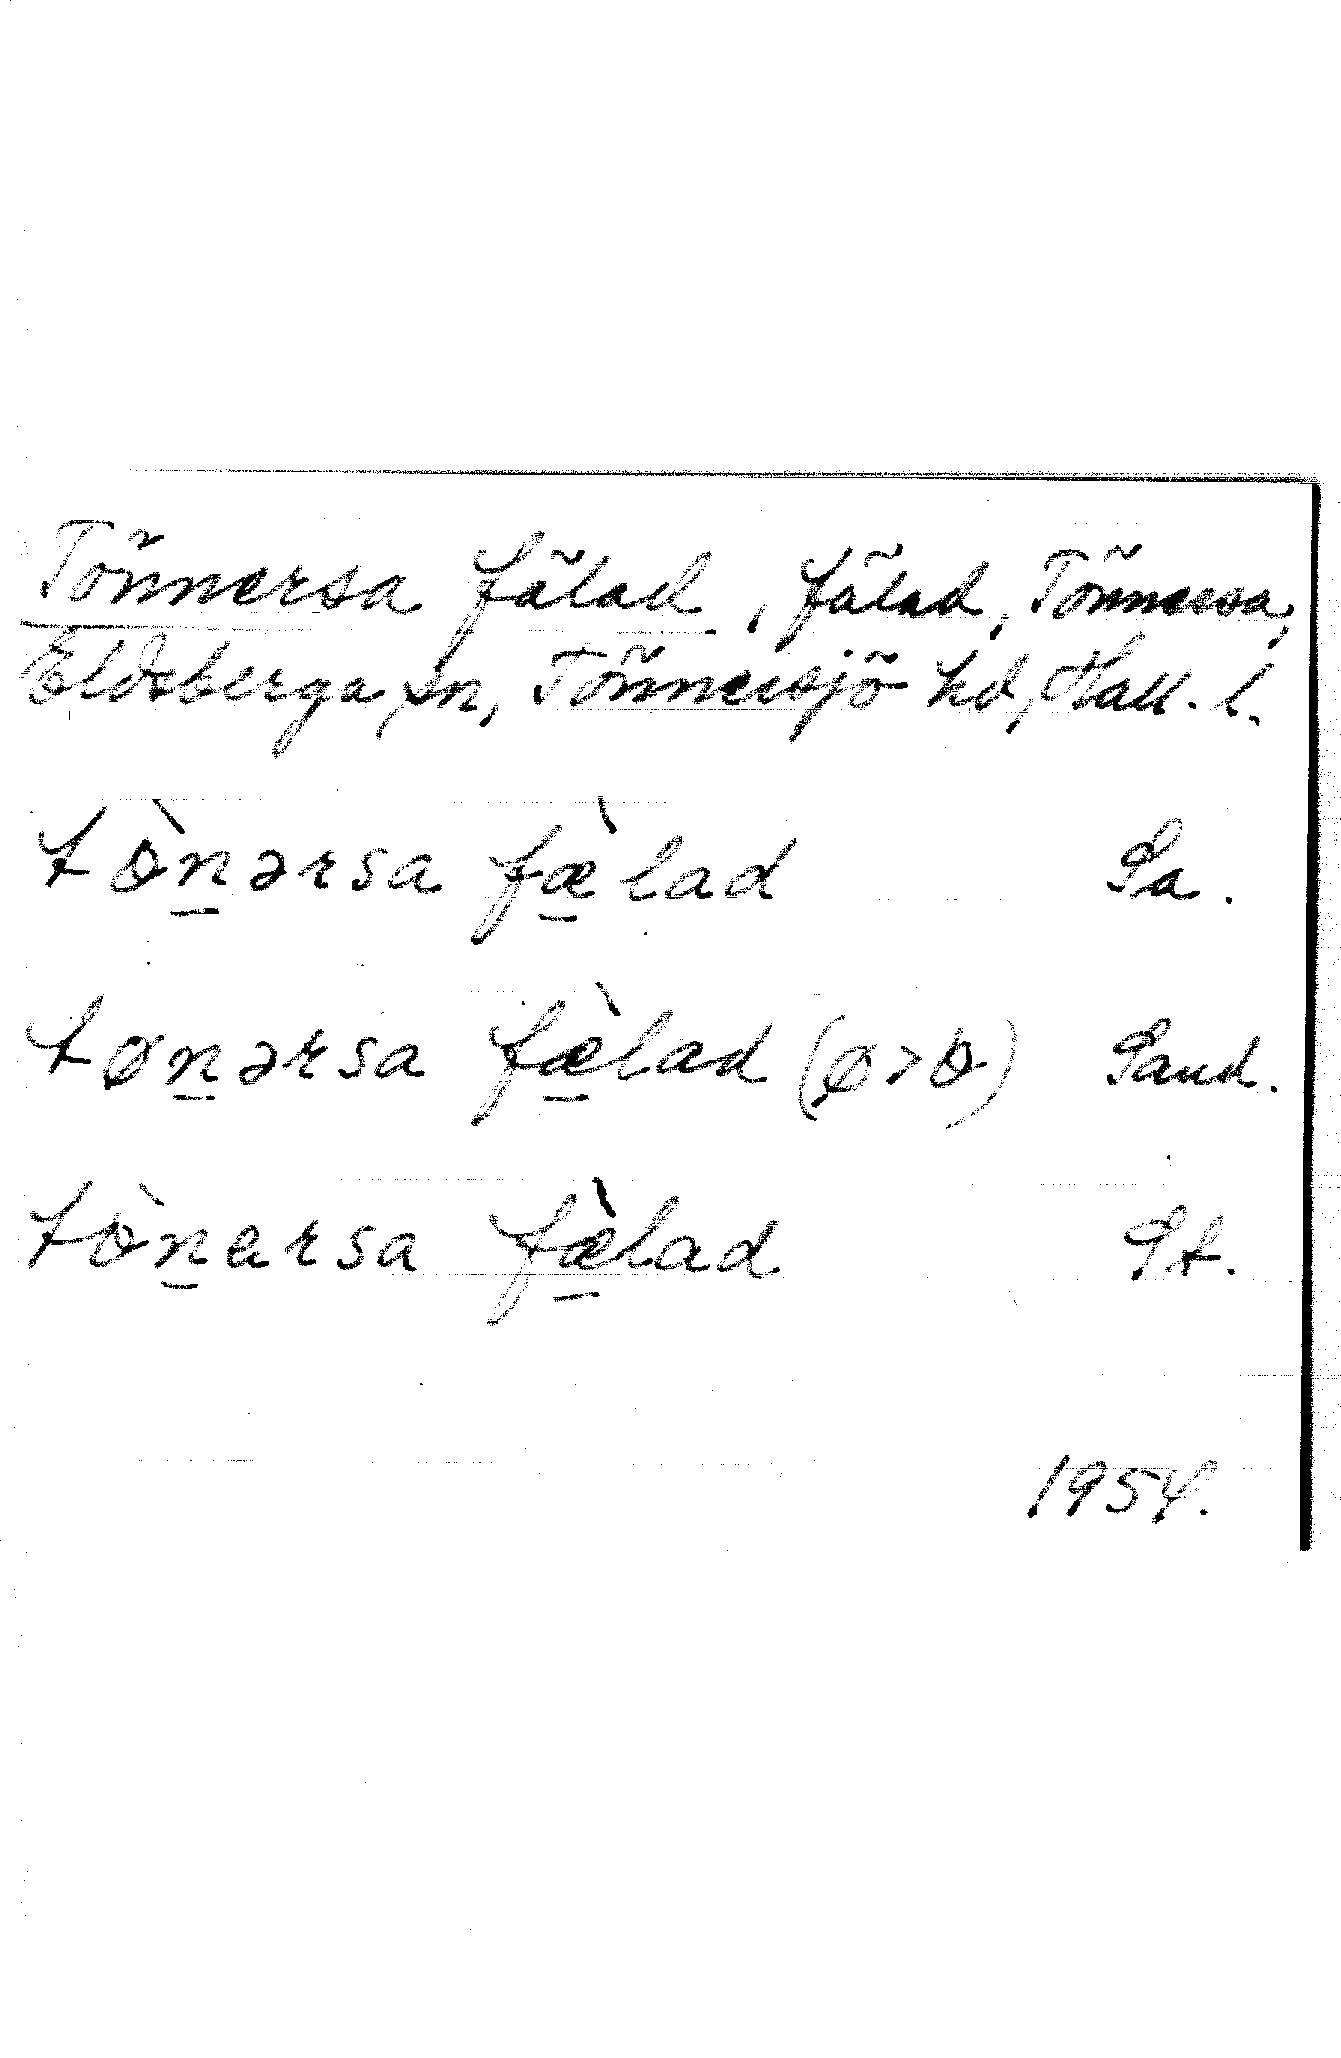 Tönnersa fälad, fälad, Tönnersa,
Eldsberga sn, Tönnersjö hd, Hall. l.
tòn̲ərsa fæ̲̀lad Sa.
tøn̲ərsa fæ̲̀lad (ø>ò) Sand.
tòn̲ersa fæ̲̀lad St.
1954.